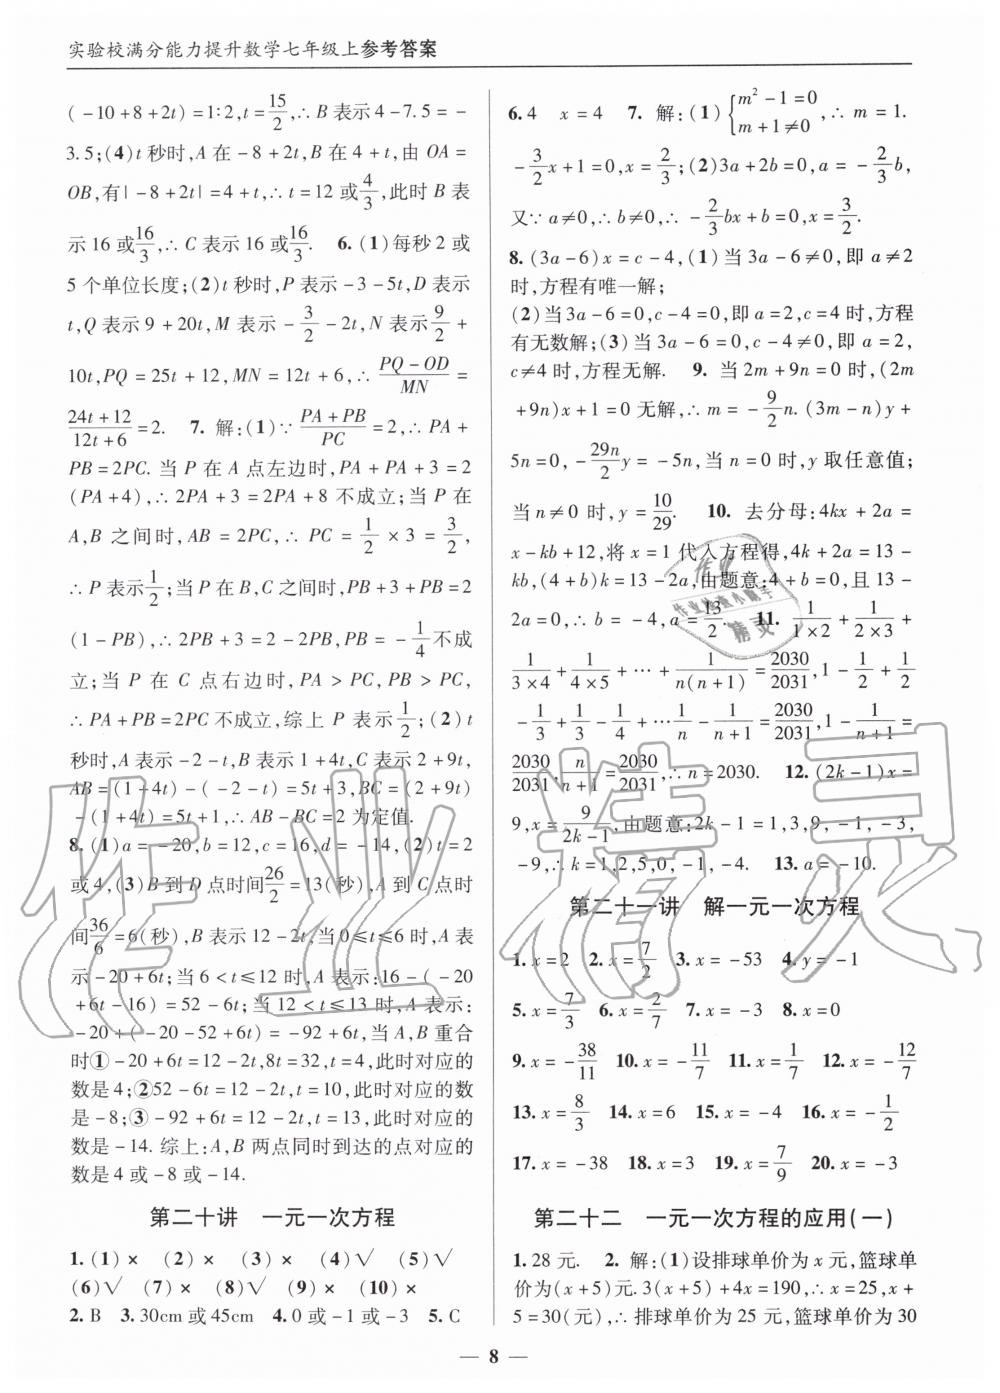 实验校满分能力提升数学七年级上参考答案
(-10+8+2t)=1:2,t=15/2,∴B表示4-7.5=-
3.5;(4)t秒时,A在-8+2t,B在4+t,由OA=
OB,有|-8+2t|=4+t,∴t=12或4/3,此时B表
示16或16/3,∴C表示16或16/3. 6. (1)每秒2或
5个单位长度;(2)t秒时,P表示-3-5t,D表示
t,Q表示9+20t,M表示-3/2-2t,N表示9/2+
10t,PQ=25t+12,MN=12t+6,∴(PQ-OD)/MN=
(24t+12)/(12t+6)=2. 7. 解:(1)∵(PA+PB)/PC=2,∴PA+
PB=2PC. 当P在A点左边时,PA+PA+3=2
(PA+4),∴2PA+3=2PA+8不成立;当P在
A,B之间时,AB=2PC,∴PC=1/2×3=3/2,
∴P表示1/2;当P在B,C之间时,PB+3+PB=2
(1-PB),∴2PB+3=2-2PB,PB=-1/4不成
立;当P在C点右边时,PA>PC,PB>PC,
∴PA+PB=2PC不成立,综上P表示1/2;(2)t
秒时,A表示-2-t,B表示1+4t,C表示2+9t,
AB=(1+4t)-(-2-t)=5t+3,BC=(2+9t)
-(1+4t)=5t+1,∴AB-BC=2为定值.
8. (1)a=-20,b=12,c=16,d=-14,(2)t=2
或4,(3)B到D点时间26/2=13(秒),A到C点时
间36/6=6(秒),B表示12-2t,当0≤t≤6时,A表
示-20+6t;当6<t≤12时,A表示:16-(-20
+6t-16)=52-6t;当12<t≤13时,A表示:
-20+(-20-52+6t)=-92+6t,当A,B重合
时①-20+6t=12-2t,8t=32,t=4,此时对应的
数是4;②52-6t=12-2t,t=10,此时对应的数
是-8;③-92+6t=12-2t,t=13,此时对应的
数是-14. 综上:A,B两点同时到达的点对应的
数是4或-8或-14.
第二十讲 一元一次方程
1. (1)× (2)× (3)× (4)√ (5)√
(6)√ (7)× (8)√ (9)× (10)×
2. B 3. 30cm或45cm 4. 0或-1或-3 5. C
6. 4 x=4 7. 解:(1){m²-1=0 m+1≠0,∴m=1.
-3/2x+1=0,x=2/3;(2)3a+2b=0,a=-2/3b,
又∵a≠0,∴b≠0,∴-2/3bx+b=0,x=3/2.
8. (3a-6)x=c-4,(1)当3a-6≠0,即a≠2
时,方程有唯一解;
(2)当3a-6=0,c-4=0,即a=2,c=4时,方程
有无数解;(3)当3a-6=0,c-4≠0,即a=2,
c≠4时,方程无解. 9. 当2m+9n=0时,(2m
+9n)x+1=0无解,∴m=-9/2n. (3m-n)y+
5n=0,-29n/2y=-5n,当n=0时,y取任意值;
当n≠0时,y=10/29. 10. 去分母:4kx+2a=
x-kb+12,将x=1代入方程得,4k+2a=13-
kb,(4+b)k=13-2a,由题意:4+b=0,且13-
2a=0,∴b=-4,a=13/2. 11. 1/(1×2)+1/(2×3)+
1/(3×4)+1/(4×5)+…+1/(n(n+1))=2030/2031,1-1/2+1/2
-1/3+1/3-1/4+…1/n-1/(n+1)=2030/2031,1-1/(n+1)=
2030/2031,n/(n+1)=2030/2031,∴n=2030. 12. (2k-1)x=
9,x=9/(2k-1),由题意:2k-1=1,3,9,-1,-3,
-9,∴k=1,2,5,0,-1,-4. 13. a=-10.
第二十一讲 解一元一次方程
1. x=2 2. x=7/2 3. x=-53 4. y=-1
5. x=7/3 6. x=2/7 7. x=-3 8. x=0
9. x=-38/11 10. x=-11/7 11. x=1/7 12. x=-12/7
13. x=8/3 14. x=6 15. x=-4 16. x=-1/2
17. x=-38 18. x=3 19. x=7/9 20. x=-3
第二十二 一元一次方程的应用(一)
1. 28元. 2. 解:(1)设排球单价为x元,篮球单
价为(x+5)元. 3(x+5)+4x=190,∴x=25,x+
5=30(元),∴排球单价为25元,篮球单价为30
— 8 —
作业精灵
作业
作业检查小助手
精灵